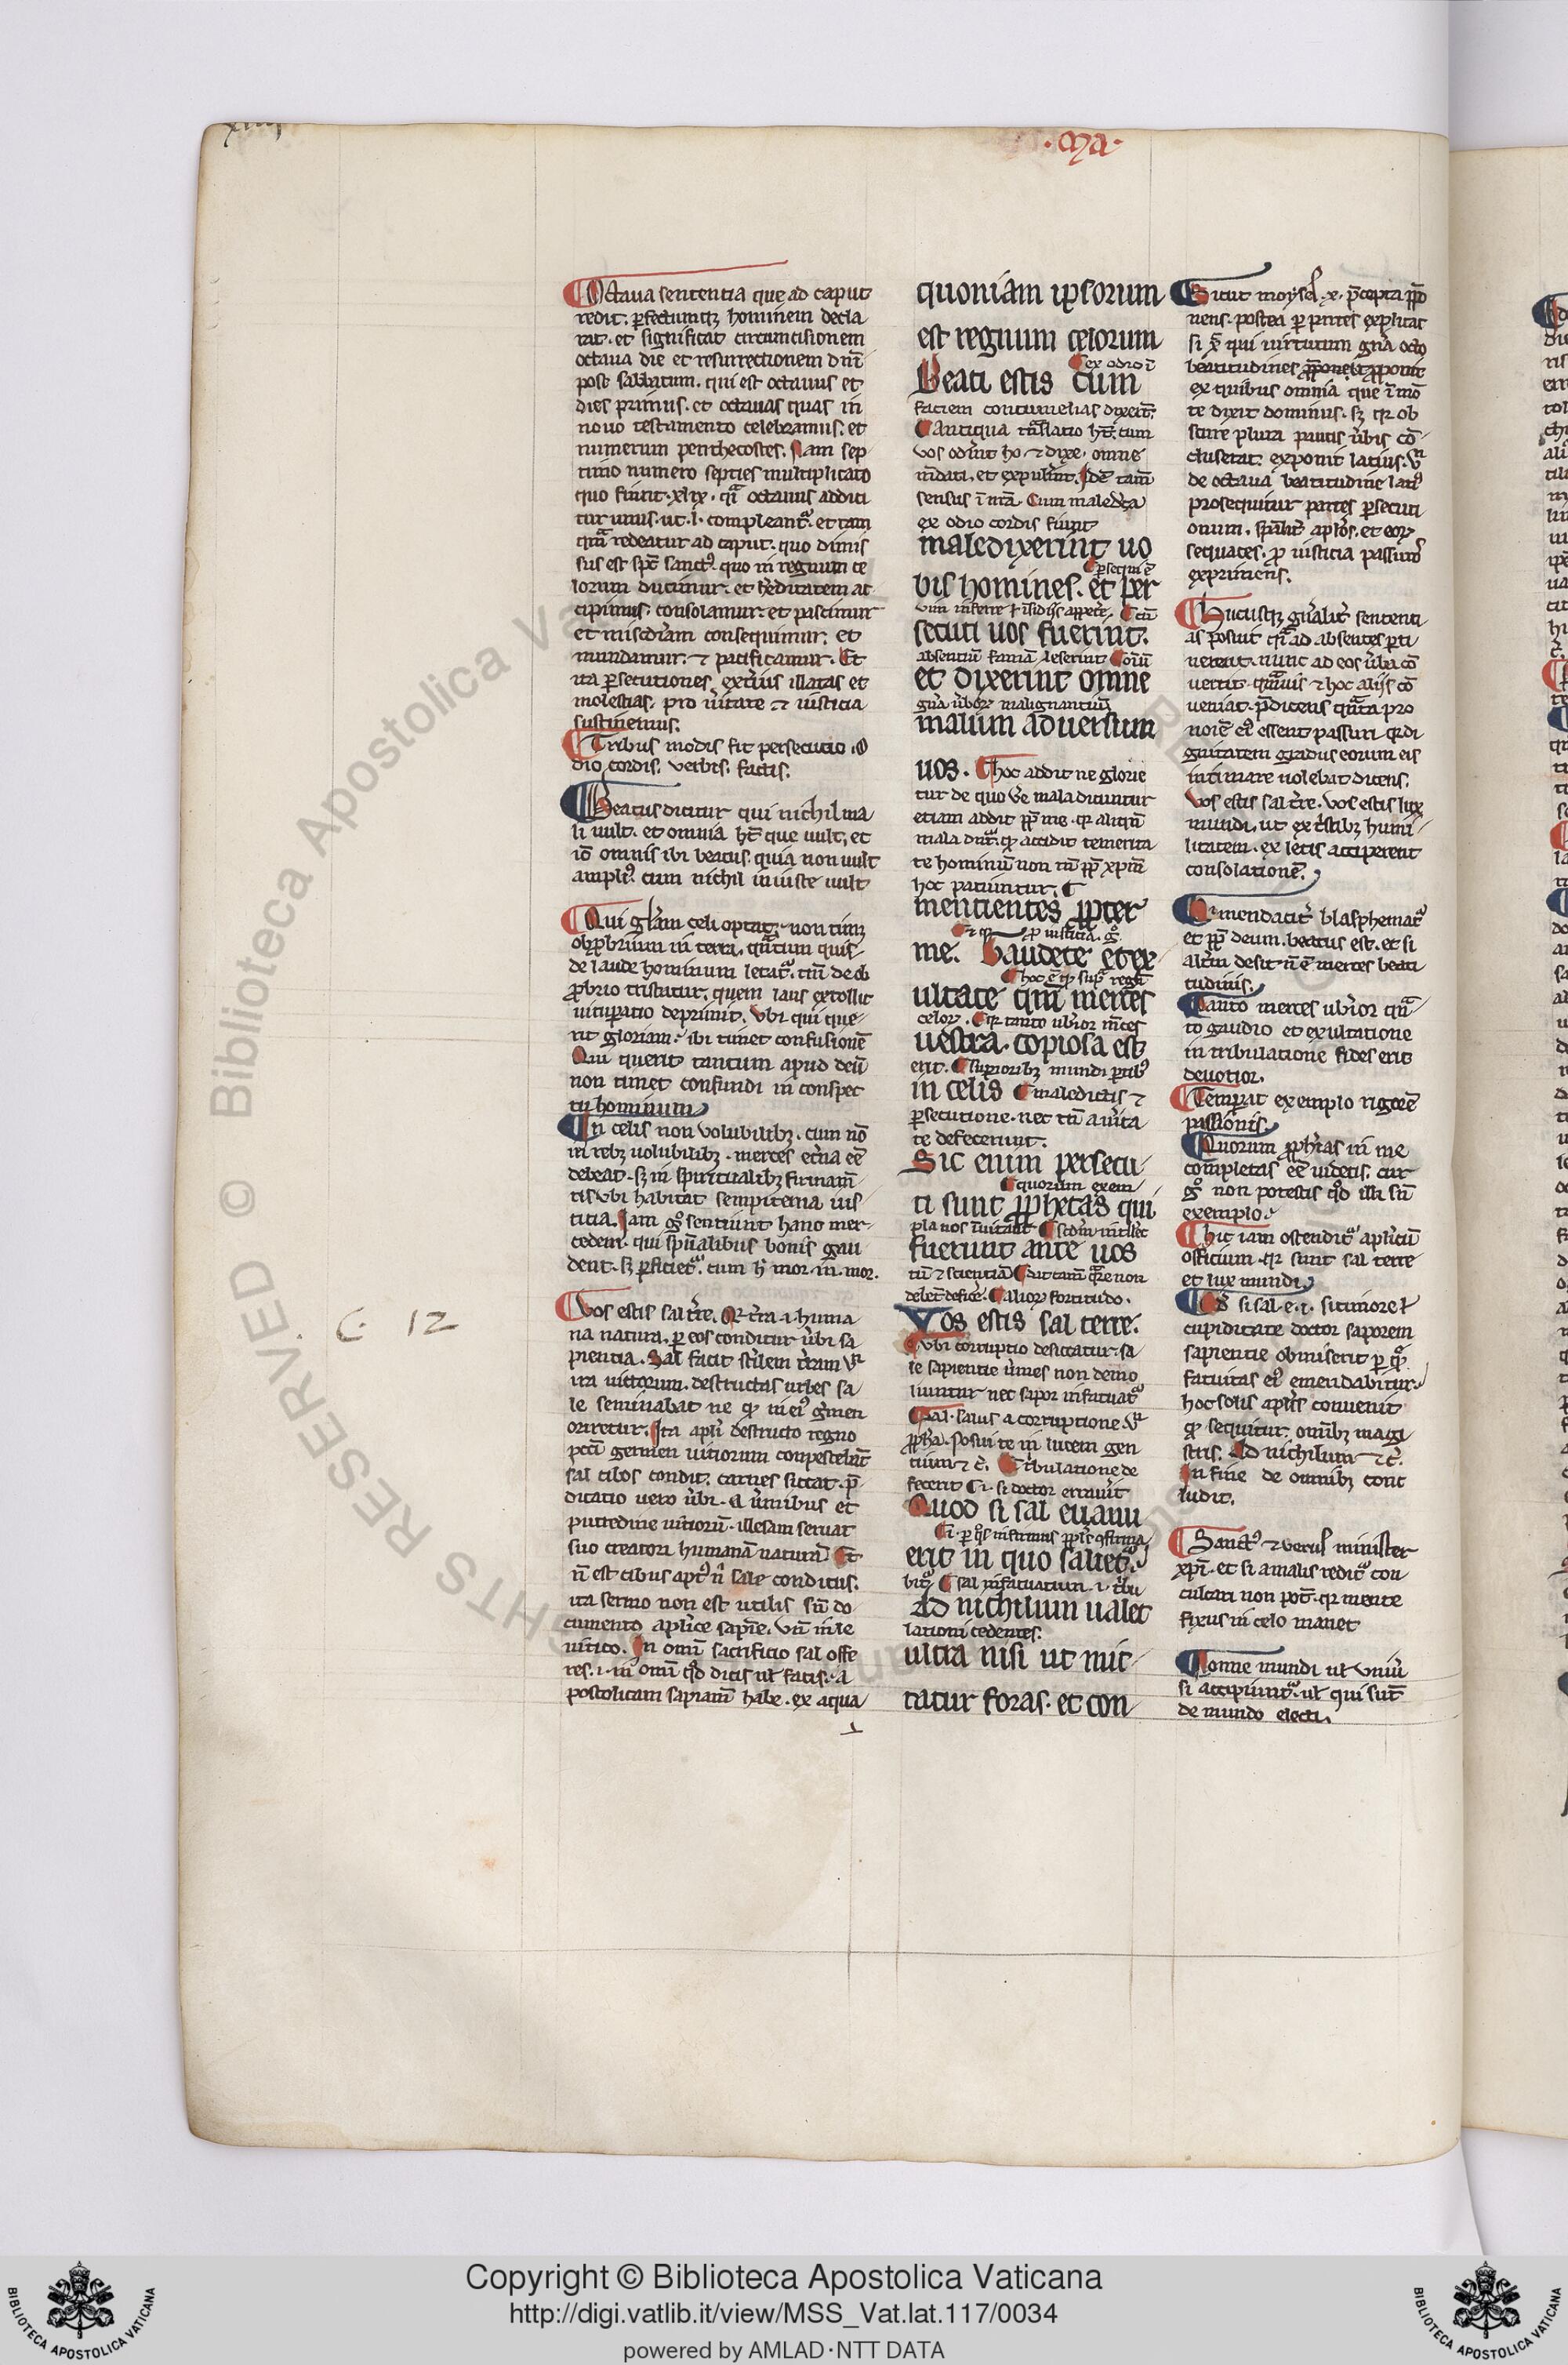 .Ma.
Octaua sententia que ad caput
redit. perfectumque hominem decla
rat. et significat circumcisionem
octaua die et resurrectionem dnī
post sabbatum. qui est octauus et
dies primus. et octauas quas in
nouo testamento celebramus. et
numerum penthecostes. Nam sep
timo numero septies multiplicato
quo fiunt .xlix. octauus addici
tur unus. ut .l. compleant et tam
redeatur ad caput. quo dimis
sus est spc sanct quo in regnum ce
lorum ducimur. et heditatem ac
cipimus. consolamur. et pascimur
et miscdiam consequimur. et
mundamur. ⁊ pacificamur. Et
ita persecutiones exterius illatas et
molestias. pro uitate ⁊ iusticia
sustinemus.
Tribus modis fit persecutio. O
dio cordis. verbis. factis.
Beatus dicitur qui nichil ma
li uult. et omnia ht que uult. et
io omnis ibi beatus. quia non uult
ampli cum nichil iniuste uult
Qui gliam celi optat. non timz
obprobrium in terra. quantum quis
de laude hominum letat tm de ob
probrio tristatur. quem laus extollit
uituperatio deprimit. vbi qui que
rit gloriam. ibi timet confusionē
Qui querit tantum apud deū
non timet confundi in conspec
tu hominum
In celis non volubilibz. cum nō
in rebz uolubilibz. merces eterna eē
debeat. sz in spiritualibz firmam
tis vbi habitat sempiterna ius
titia. Jam g sentiunt hanc mer
cedem. qui spualibus bonis gau
dent. sz perficiet cum h mor. in. mor.
Vos estis sal tre. Qr tra .i. huma
na natura. per eos conditur ubi sa
pientia. Sal facit sterilem terram vn
ira uictorum. destructas urbes sa
le seminabat ne in ei germen
oriretur. Ita apli destructo regno
pccī germen uitiorum compescebant
sal cibos condit. carnes siccat. p̄
dicatio uero ubi. a uermibus et
putredine uitiorū. illesam seruat
suo creatori humanā naturā Et
n est cibus apt n sale conditus.
ita sermo non est utilis sn do
cumento aplice sapie. vn in le
uitico. In omī sacrificio sal offe
res. i. in omī qd dicis ul facis. a
postolicam sapiam habe. ex aqua
quoniam ipsorum
est regnum celorum
ex odio ī
Beati estis cum
faciem contumelias dixerit.
Antiqua translatio ht. cum
vos odint ho ⁊ dixe. omne
mdati. et expulint. Jdē tam
sensus ī nra. Cum maledca
ex odio cordis fiunt
maledixerint uo
persequi ē
bis homines. et per
vim inferre ł isidiis appetere. cū
secuti uos fuerint.
absentiū famā leserint
et dixerint omne
malignantium
malum aduersum
uos. hoc addit ne glorie
tur de quo ue mala dicuntur
etiam addit pp me. qr aliqn
mala dnt accidit temerita
te hominū non tm pp xpm
hoc patiuntur.
mentientes ppter
iusticia. g
me. Gaudete et ex
hoc ē supra regn
ultate qm merces
celor. qr tanto uberior mces
uestra. copiosa est
erit. superioribz mundi partibz
in celis maledictis ⁊
persecutione. nec tn a uita
te defecerunt.
Sic enim persecu
quorum exem
ti sunt pphetas qui
pla nos inuitant
fuerunt ante uos
tū ⁊ scientiā
delet defice. alior fortitudo.
Vos estis sal terre.
vbi corruptio desiccatur. sa
le sapientie umes non demo
liuntur nec sapor infatuat
Sal. saluis a corruptione. vn
ppha. Posui te in lucem gen
tium ⁊ c. tribulatione de
fecerit .i. si doctor errauit
Quod si sal euanu
.i. per
erit in quo saliet
sal infatuatum .i. tribu
ad nichilum ualet
lationi cedentes.
ultra nisi ut mit
tatur foras. et con
Sicut moyses .x. pcepta ppo
nens. postea per partes explicat
si qui uirtutum gna octo
beatitudines pponebt pponit
ex quibus omnia que ī mō
te dixit dominus. sz qr ob
scure plura paucis ubis cō
cluserat. exponit latius. vn
de octaua beatitudine lati
prosequitur partes persecuti
onum. spalit aplos. et eor
sequaces. p iusticia passuros
exprimens.
Hucusqz gnalit sententi
as posuit ad absentes perti
nerent. nunc ad eos uba cō
uertit. quis ⁊ hoc aliis cō
ueniat. pdicens quanta pro
noie ei essent passuri. qr di
gnitatem gradus eorum eis
intimare uolebat dicens.
Vos estis sal tre. vos estis lux
mundi. ut ex tristibz humi
litatem. ex letis acciperent
consolationē.
Qr mendacit blasphemat
et pp deum. beatus est. et si
altm desit n ē merces beati
tudinis.
Tanto merces uberior quā
to gaudio et exultatione
in tribulatione fides erit
deuotior.
Temperat exemplo rigorē
passionis.
Quorum pphtias in me
completas eē uidetis. cur
g non potestis qd illi sn
exemplo.
hic iam ostendit aplicū
officium. qr sunt sal terre
et lux mundi
Qd si sal .e. i. si timore ł
cupiditate doctor saporem
sapientie obmiserit per
fatuitas ei emendabitur.
hoc solis aplis conuenit
sequitur. omibz magi
stris. Ad nichilum ⁊ c.
In fine de omnibz conc
ludit.
Sanct ⁊ verus minister
xpi. et si a malis redit con
culcari non pot. qr mente
fixus in celo manet
Nonne mundi ul uniū
si accipiunt. ul qui sut
de mundo electi.
C 12
Copyright © Biblioteca Apostolica Vaticana
http://digi.vatlib.it/view/MSS_Vat.lat.117/0034
powered by AMLAD·NTT DATA
BIBLIOTECA APOSTOLICA VATICANA
BIBLIOTECA APOSTOLICA VATICANA